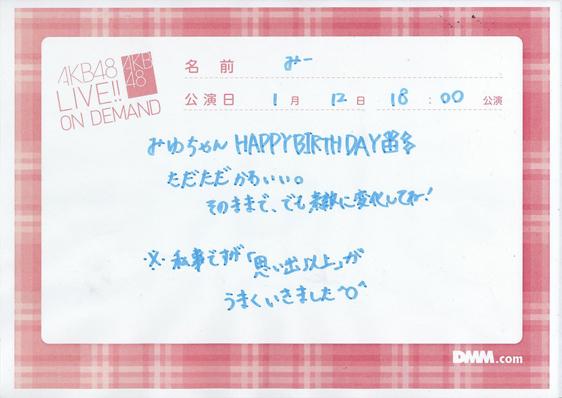 AKB48
LIVE!!
ON DEMAND
AKB
48
名前 みー
公演日 1月 12日 18:00 公演
みゆちゃん HAPPY BIRTHDAY
ただただかわいい。
そのままで、でも素敵に変化してね!
※私事ですが「思い出以上」が
うまくいきました^o^
DMM.com